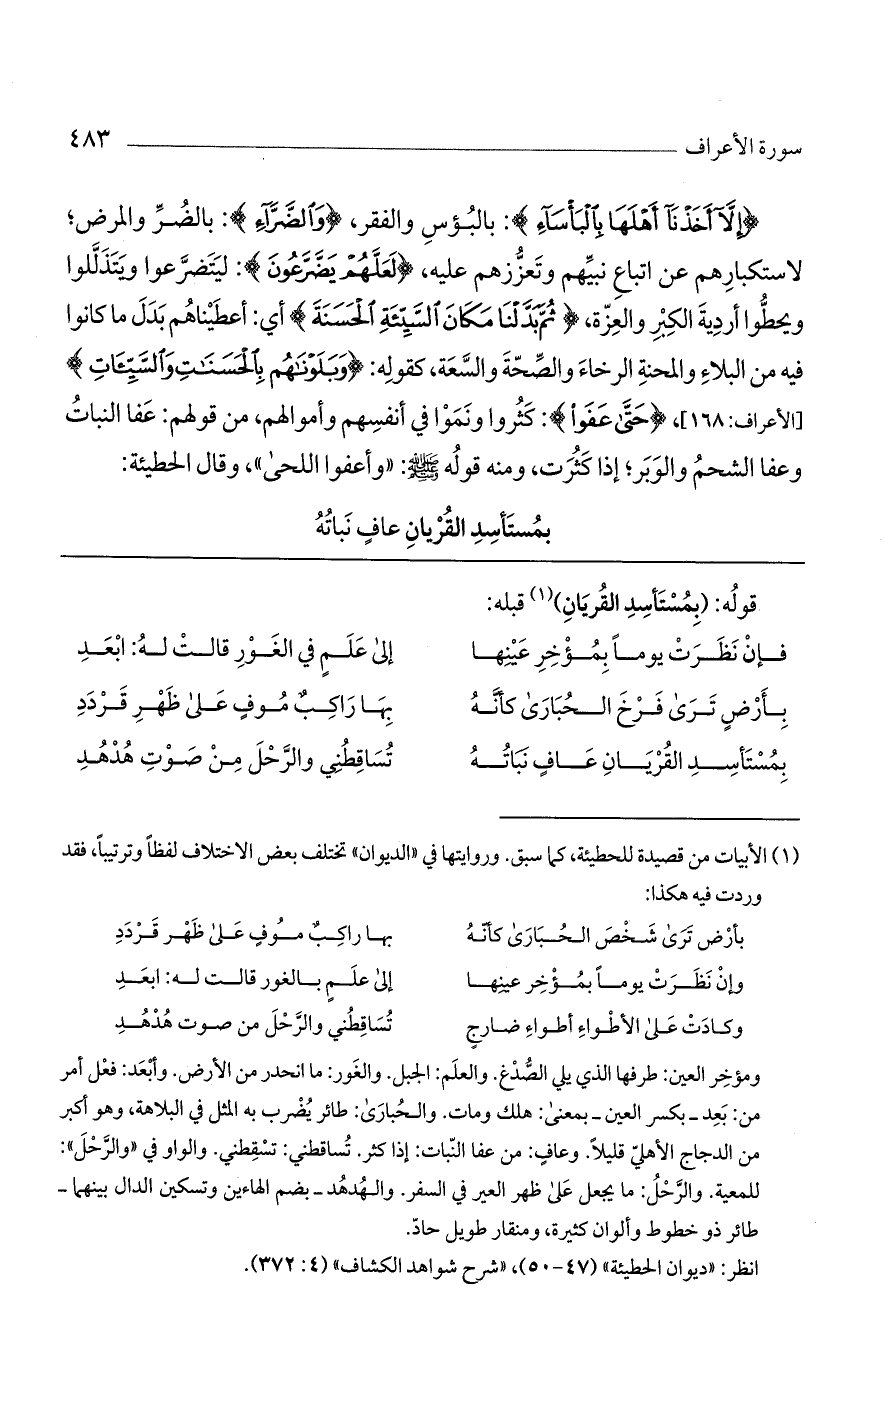 سورة الأعراف ٤٨٣
﴿إِلَّآ أَخَذْنَآ أَهْلَهَا بِٱلْبَأْسَآءِ﴾: بالبُؤسِ والفقر، ﴿وَٱلضَّرَّآءِ﴾: بالضُرِّ والمرض؛
لاستكبارِهم عن اتباعِ نبيِّهم وتَعزُّزهم عليه، ﴿لَعَلَّهُمْ يَضَّرَّعُونَ﴾: ليَتضرَّعوا ويَتَذَلَّلوا
ويحطُّوا أردِيةَ الكِبْرِ والعِزّة، ﴿ثُمَّ بَدَّلْنَا مَكَانَ ٱلسَّيِّئَةِ ٱلْحَسَنَةَ﴾ أي: أعطَيْناهُم بَدَلَ ما كانوا
فيه من البلاءِ والمحنةِ الرخاءَ والصِّحّةَ والسَّعَة، كقولِه: ﴿وَبَلَوْنَٰهُم بِٱلْحَسَنَٰتِ وَٱلسَّيِّـَٔاتِ﴾
[الأعراف: ١٦٨]، ﴿حَتَّىٰ عَفَوا۟﴾: كَثُروا ونَمَوْا في أنفسِهم وأموالهم، من قولهم: عَفا النباتُ
وعفا الشحمُ والوَبَر؛ إذا كَثُرَت، ومنه قولُه ﷺ: «وأعفوا اللحىٰ»، وقال الحطيئة:
بمُستَأسِدِ القُرْيانِ عافٍ نَباتُهُ
قولُه: (بِمُسْتَأسِدِ القُريَانِ)(١) قبله:
فإنْ نَظَرَتْ يوماً بِمُؤْخِرِ عَيْنِها إلىٰ عَلَمٍ في الغَوْرِ قالتْ لهُ: ابْعَدِ
بِأَرْضٍ تَرَىٰ فَرْخَ الحُبَارَىٰ كأنَّهُ بِهَا رَاكِبٌ مُوفٍ عَلىٰ ظَهْرِ قَرْدَدِ
بِمُسْتَأسِدِ القُرْيَانِ عَافٍ نَباتُهُ تُسَاقِطُنِي والرَّحْلَ مِنْ صَوْتِ هُدْهُدِ
(١) الأبيات من قصيدة للحطيئة، كما سبق. وروايتها في «الديوان» تختلف بعض الاختلاف لفظاً وترتيباً، فقد
وردت فيه هكذا:
بأرْضٍ تَرَىٰ شَخْصَ الحُبَارَىٰ كأنّهُ بها راكبٌ موُفٍ عَلىٰ ظَهْرِ قَرْدَدِ
وإنْ نَظَرَتْ يوماً بمُؤْخِرِ عينِها إلىٰ علَمٍ بالغور قالت له: ابعَدِ
وكادَتْ عَلىٰ الأطْواءِ أطواءِ ضارِجٍ تُسَاقِطُني والرَّحْلَ من صوت هُدْهُدِ
ومؤخِر العين: طرفها الذي يلي الصُّدْغ. والعلَم: الجبل. والغَور: ما انحدر من الأرض. وأبْعَد: فعْل أمر
من: بَعِد ـ بكسر العين ـ بمعنىٰ: هلك ومات. والحُبارَىٰ: طائر يُضْرب به المثل في البلاهة، وهو أكبر
من الدجاج الأهليّ قليلاً. وعافٍ: من عفا النّبات: إذا كثر. تُساقطني: تسْقِطني. والواو في «والرَّحْلَ»:
للمعية. والرَّحْلُ: ما يجعل عَلىٰ ظهر العير في السفر. والهُدهُد ـ بضم الهاءين وتسكين الدال بينهما ـ
طائر ذو خطوط وألوان كثيرة، ومنقار طويل حادّ.
انظر: «ديوان الحطيئة» (٤٧-٥٠)، «شرح شواهد الكشاف» (٤: ٣٧٢).